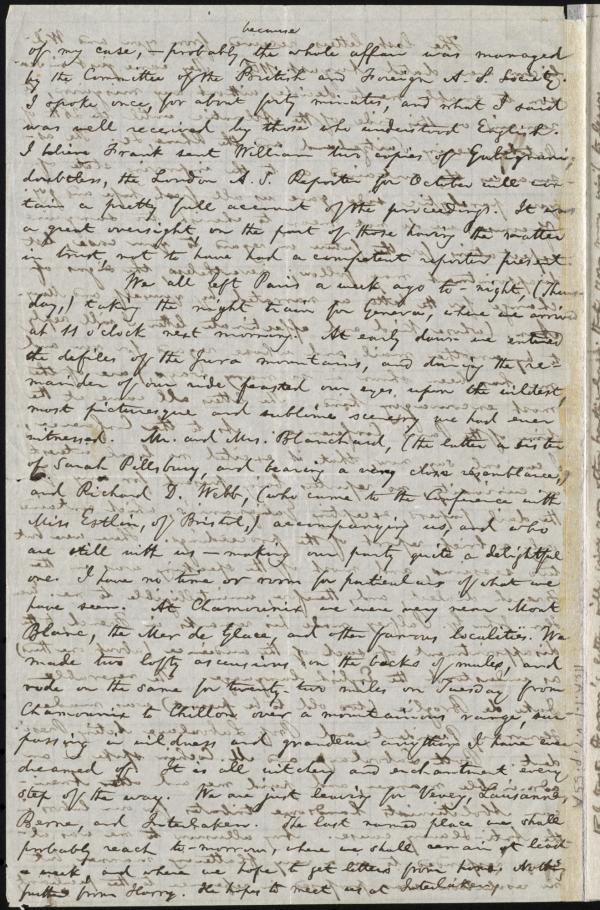 because
of my case, — probably, the whole affair was managed
by the Committee of the British and Foreign A. S. Society.
I spoke once, for about forty minutes, and what I said
was well received by those who understood English.
I believe Frank sent William two copies of Galignani;
doubtless, the London A. S. Reporter for October will con-
tain a pretty full account of the proceedings. It was
a great oversight, on the part of those having the matter
in trust, not to have had a competent reporter present.
We all left Paris a week ago to-night, (Thurs-
day,) taking the night train for Geneva, where we arrived
at 11 o'clock next morning. At early dawn we entered
the defiles of the Jura mountains, and during the re-
mainder of our ride feasted our eyes upon the wildest,
most picturesque and sublime scenery we had ever
witnessed. Mr. and Mrs. Blanchard, (the latter a sister
of Sarah Pillsbury, and bearing a very close resemblance,)
and Richard D. Webb, (who came to the Conference with
Miss Estlin, of Bristol,) accompanying us, and who
are still with us — making our party quite a delightful
one. I have no time or room for particulars of what we
have seen. At Chamounix we were very near Mont
Blanc, the Mer de Glace, and other famous localities. We
made two lofty ascensions on the backs of mules, and
rode on the same for twenty-two miles on Tuesday from
Chamounix to Chillon, over a mountainous range, sur-
passing in wildness and grandeur anything I have ever
dreamed of. It is all witchery and enchantment every
step of the way. We are just leaving for Vevey, Lausanne,
Berne, and Interlaken. The last named place we shall
probably reach to-morrow, where we shall remain at least
a week, and where we hope to get letters from home. Nothing
further from Harry. He hopes to meet us at Interlaken.